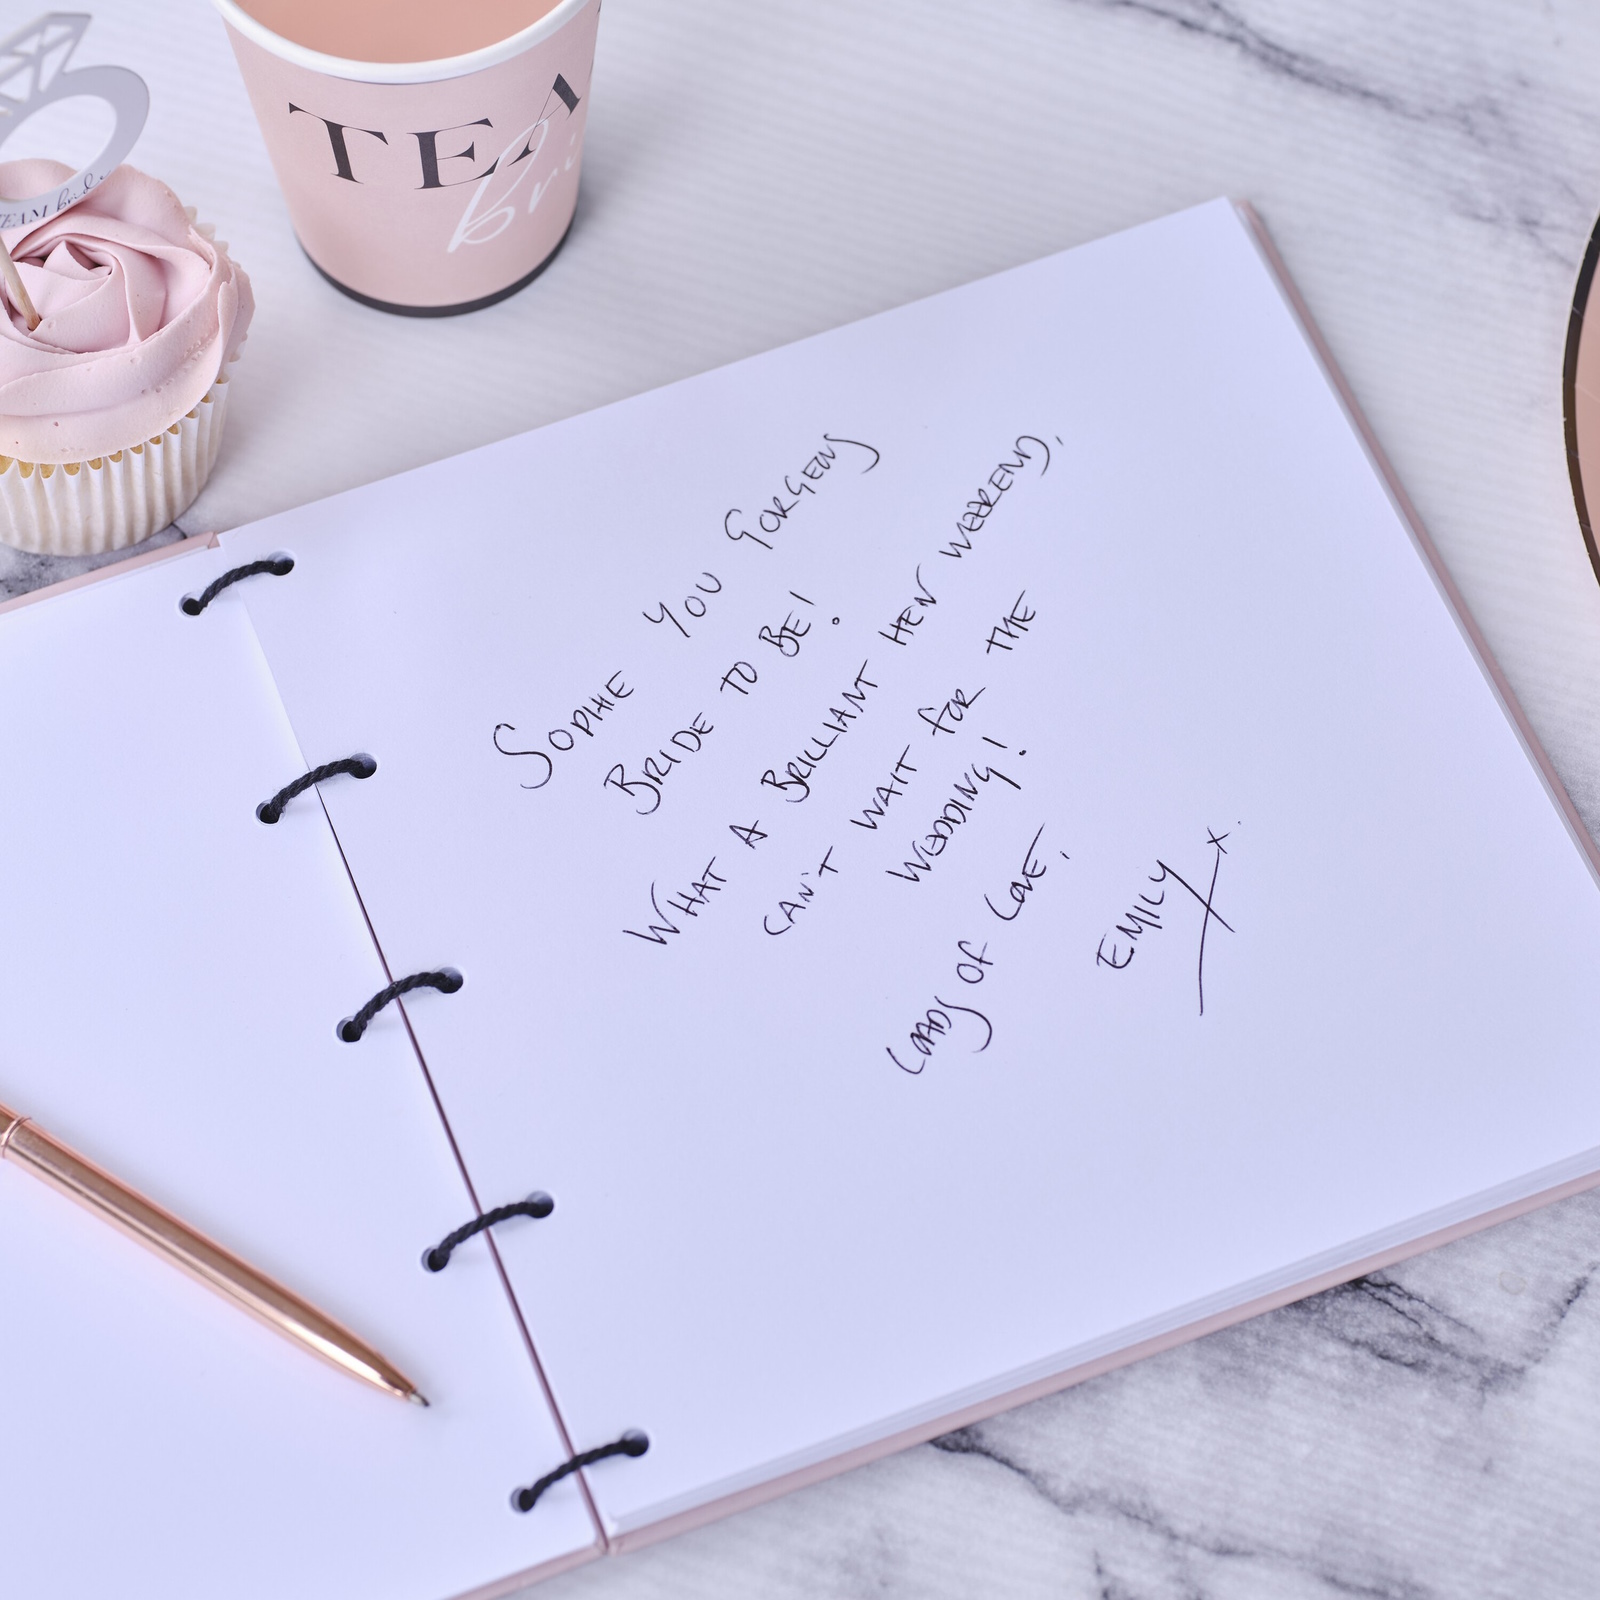 TEAM bride
TEA
bri
SOPHIE YOU GORGEOUS
BRIDE TO BE!
WHAT A BRILLIANT HEN WEEKEND,
CAN'T WAIT FOR THE
WEDDING!
LOADS OF LOVE,
EMILY x.